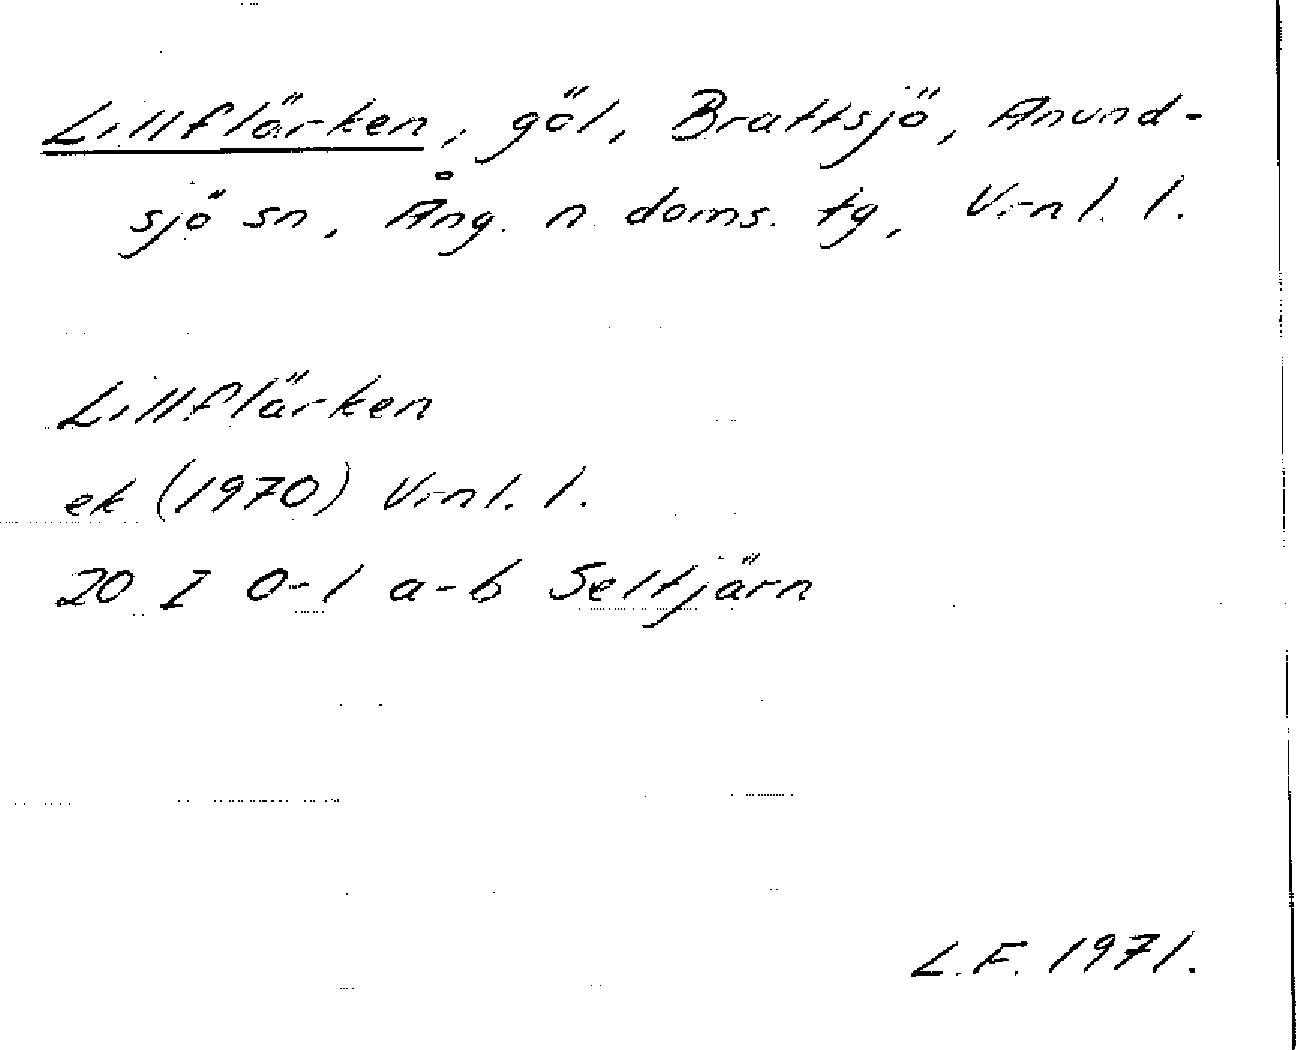 Lillflärken, göl, Brattsjö, Anund-
sjö sn, Ång. n. doms. tg, Vrnl. l.
Lillflärken
ek (1970) Vrnl. l.
20 I 0-1 a-b Seltjärn
L.F. 1971.